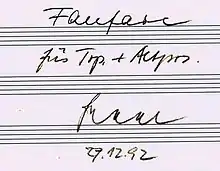 Fanfare
für Trp. + Altpos.
29.12.92